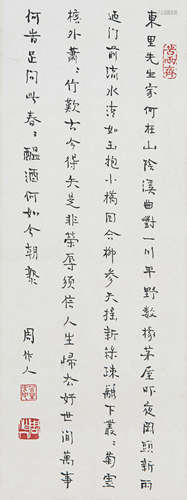 苦雨齋
東里先生家何在山陰溪曲對一川平野數椽茅屋昨夜岡頭新雨
過門前流水清如玉抱小橋回合柳參天搖新綠疎籬下叢〻菊虛
檐外蕭〻竹歎古今得失是非榮辱須信人生歸去好世間萬事
何旹足問此春〻醞酒何如今朝熟
周作人